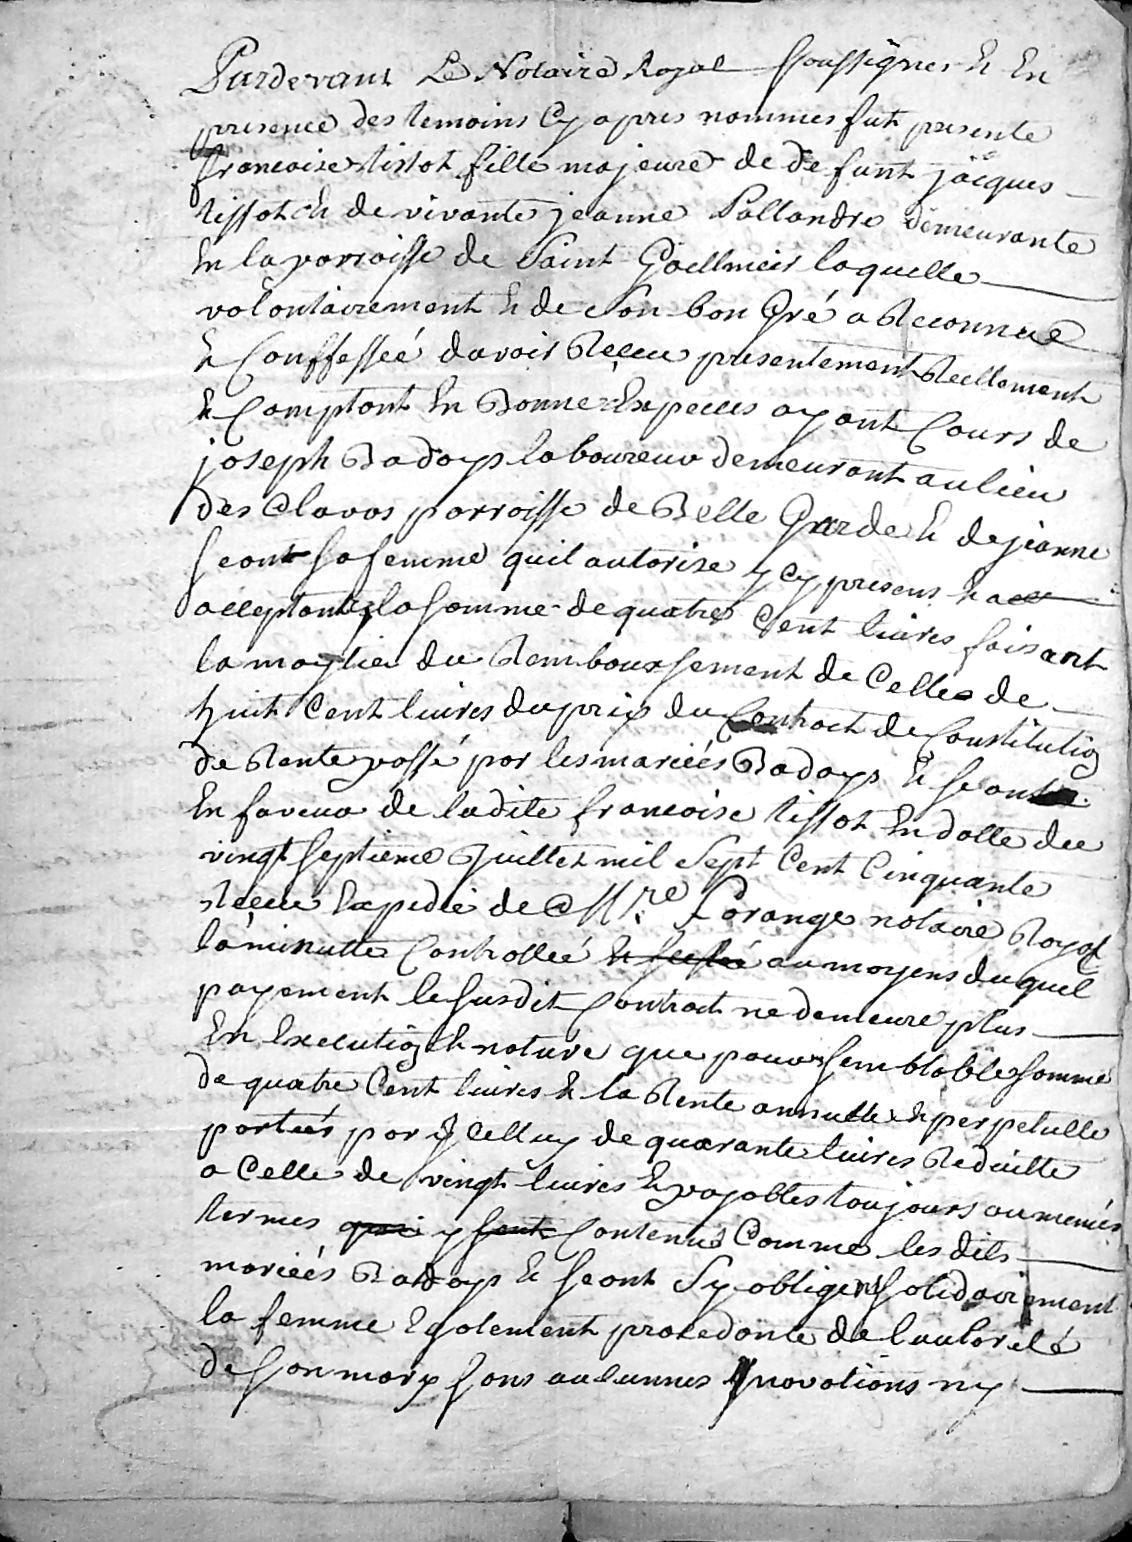 Pardevant Le Notaire Royal soussigner & En
presence des temoins Cy apres nommes fut presente
francoise tissot fille majeure de defunt jacques
tissot & de vivante jeanne Pallandre demeurante
En la parroisse de Saint Gaellmeis laquelle
volontairement & de son bon Gré a Reconnue
& Conffesseé davoir Receu presentement Reellement
& Comptant En Bonne Especes ayant Cours de
joseph Badoys laboureur demeurant au lieu
des Clavas parroisse de Belle Garde & de jeanne
seont sa femme quil autorise y cy presens & acc
acceptants la somme de quatre Cent livres faisant
la moytie du Remboursement de Celle de
huit Cent livres du prix du Contract de Constitution
de Rente passé par les mariés Badoys & seont
En faveur de ladite francoise tissot En datte du
vingt septieme Juillet mil Sept Cent Cinquante
Receu Expedié de Mre Lorange notaire Royal
la minutte Controlleé & scellé au moyens du quel
payement le susdit Contract ne demeure plus
En Execution & nature que pour semblable somme
de quatre Cent livres & la Rente annuelle & perpetuelle
porteés par Jcelluy de quarante livres Reduitte
a Celle de vingt livres & payables toujours au memes
termes qui y sont Contenus Comme les dits
marieés Badoys & seont Sy obligent solidairement
la femme Egalement procedante de lautorité
de son mary sans aucunnes novations ny